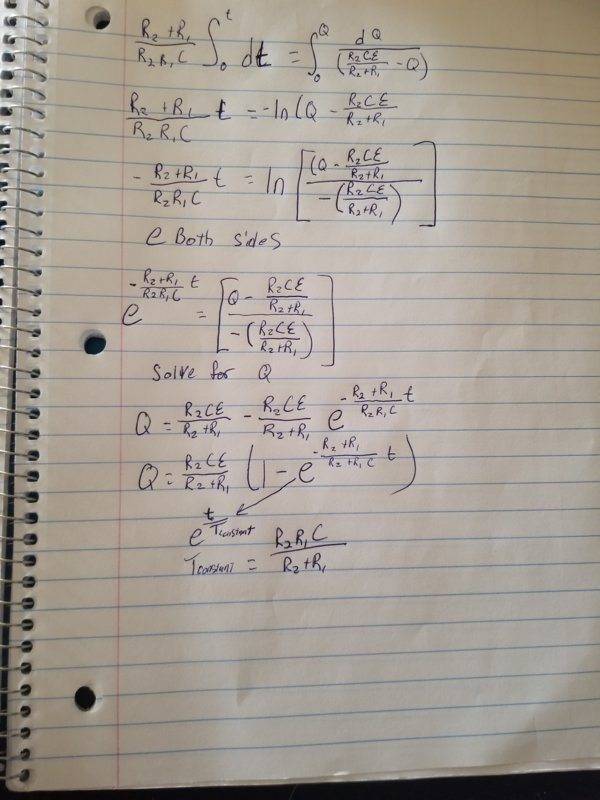 R₂+R₁/R₂R₁C ∫₀ᵗ dt = ∫₀^Q dQ/(R₂Cℰ/R₂+R₁ - Q)
R₂+R₁/R₂R₁C t = -ln(Q - R₂Cℰ/R₂+R₁
-R₂+R₁/R₂R₁C t = ln[(Q - R₂Cℰ/R₂+R₁/-(R₂Cℰ/R₂+R₁)]
e Both sides
e^(-R₂+R₁/R₂R₁C t) = [Q - R₂Cℰ/R₂+R₁/-(R₂Cℰ/R₂+R₁)]
Solve for Q
Q = R₂Cℰ/R₂+R₁ - R₂Cℰ/R₂+R₁ e^(-R₂+R₁/R₂R₁C t)
Q = R₂Cℰ/R₂+R₁ (1 - e^(-R₂+R₁/R₂+R₁C t))
e^(t/Tconstant)
Tconstant = R₂R₁C/R₂+R₁